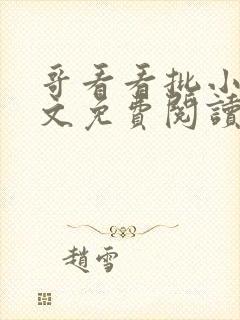 哥看看批小
文免費閱讀
趙雪